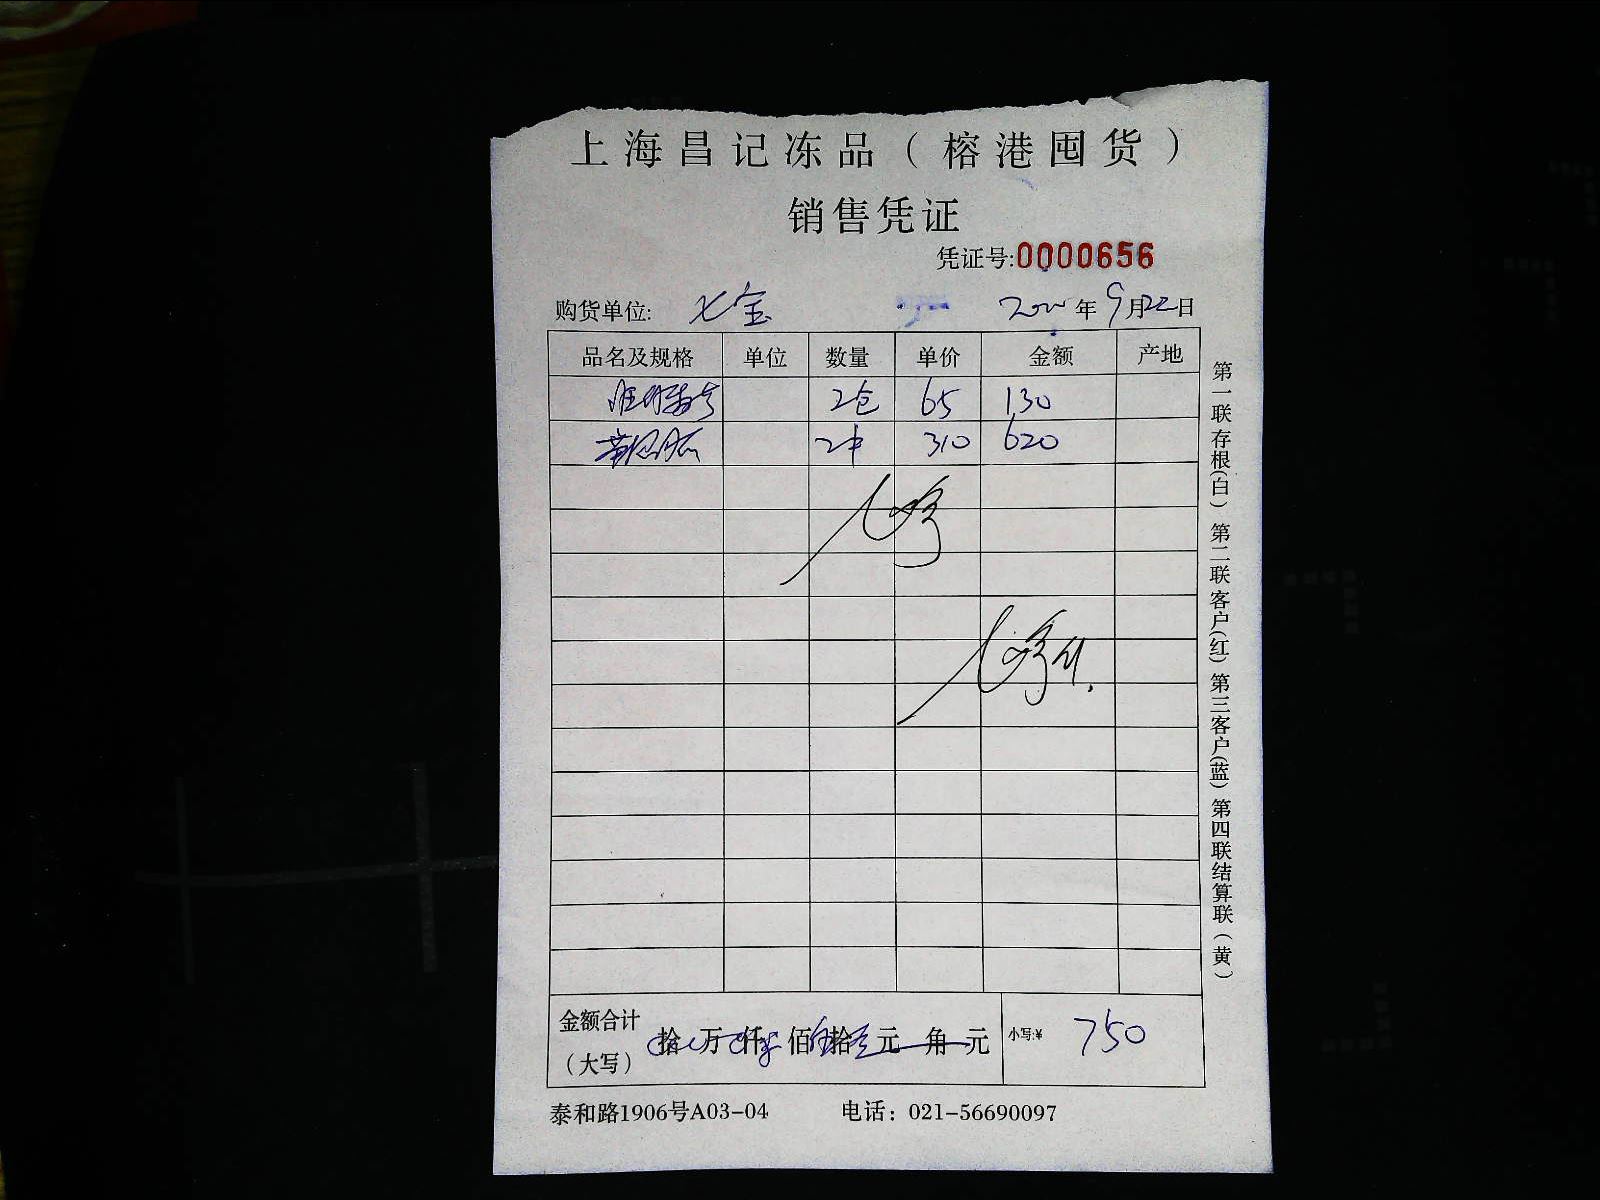 上海昌记冻品（榕港囤货）
销售凭证
凭证号:0000656
购货单位: 七宝 年9月22日
品名及规格 单位 数量 单价 金额 产地
2包 65 130
2件 310 620
金额合计（大写） 拾 万 仟 佰 拾 元 角 元 小写:¥ 750
泰和路1906号A03-04 电话：021-56690097
第一联存根(白) 第二联客户(红) 第三客户(蓝) 第四联结算联(黄)